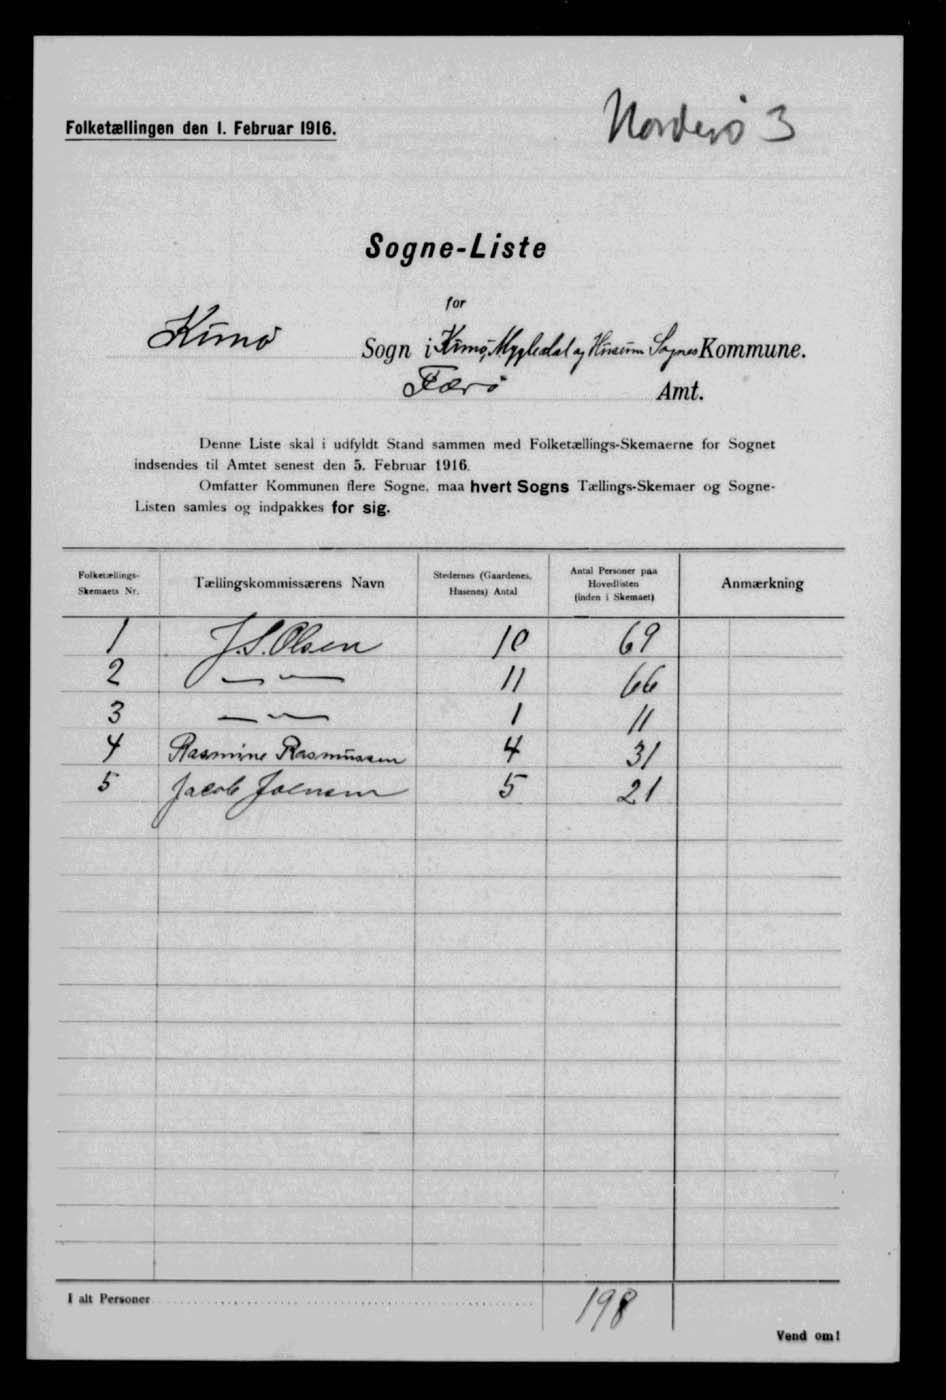 Folketællingen den 1. Februar 1916.
Norderö 3
Sogne-Liste
for
Kunø Sogn i Kunø, Mygledal og Húsum Sognes Kommune.
Færø Amt.
Denne Liste skal i udfyldt Stand sammen med Folketællings-Skemaerne for Sognet
indsendes til Amtet senest den 5. Februar 1916.
Omfatter Kommunen flere Sogne, maa hvert Sogns Tællings-Skemaer og Sogne-
Listen samles og indpakkes for sig.
Folketællings-
Skemaets Nr.
Tællingskommissærens Navn
Stedernes (Gaardenes,
Husenes) Antal
Antal Personer paa
Hovedlisten
(inden i Skemaet)
Anmærkning
1 J. S. Olsen 10 69
2 — — 11 66
3 — — 1 11
4 Rasmine Rasmussen 4 31
5 Jacob Joensen 5 21
I alt Personer 198
Vend om!